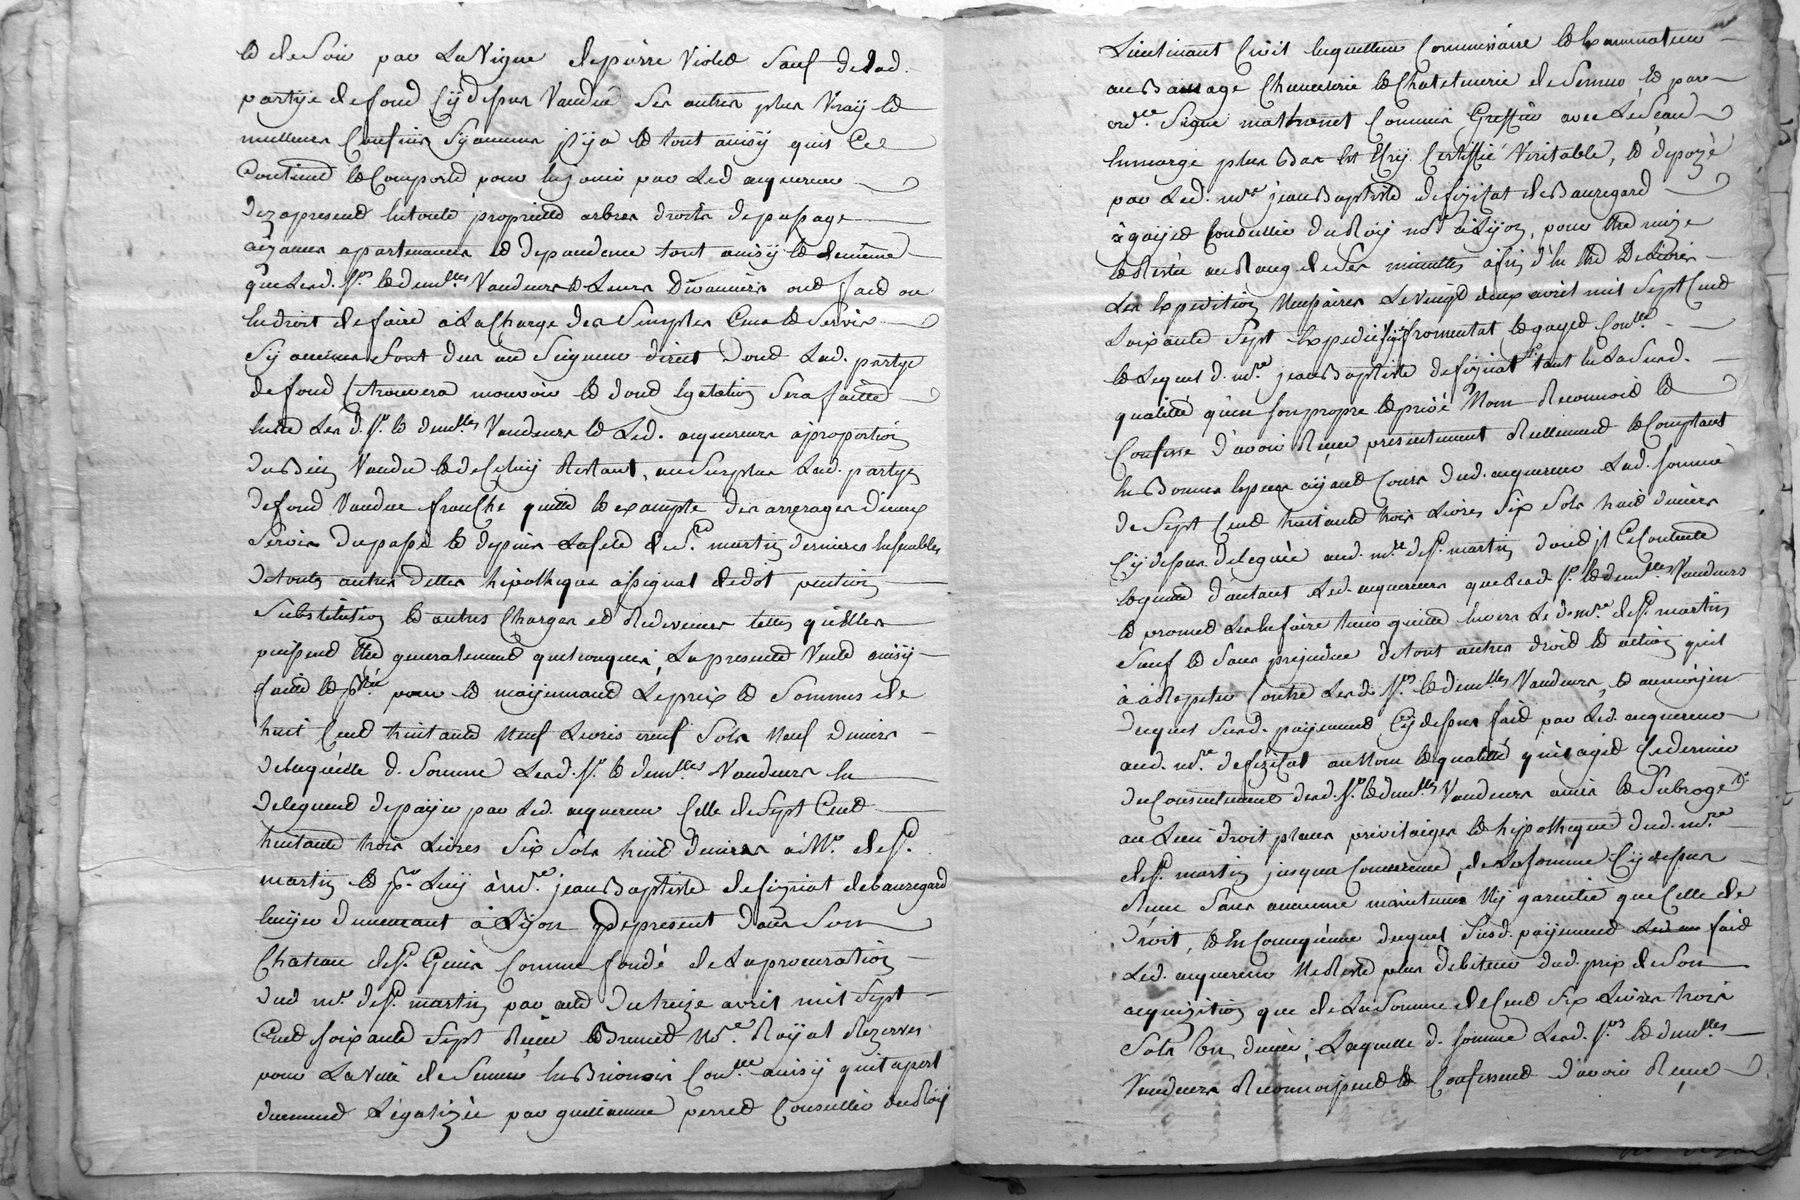 et de Soir par La Vigne de pierre Violet Sauf de lad.
partye de fond Cy dessus Vandue Ses autres plus Vray et
milleurs Confins Sy aucuns jl y a le tout ainsy quil Ce
Contient et Comporte pour en jouir par Led. acquereur
dez apresent en toute proprietté arbres droits de passage
aizances apartenances et dependence tout ainsy et de meme
que Lesd. Sr. et dem.lles Vandeurs et Leurs Devanciers ont faid ou
en droit de faire à La Charge des Simples Cens et Servis
Sy aucuns Sont dus au Seigneur direct dont Lad. partye
de fond Se trouvera mouvoir et dont Egatation Sera faitte
entre Les d. Sr. et dem.lles Vandeurs et Led. acquereurs a proportion
du Bien Vandu et de Celuy Restant, au Surplus Lad. partye
de fond Vandue franche quitte et exampte des arrerages d'iceux
Servis du passé et depuis La fete de St. martin dernier Ensembles
de touts autres dettes hipotheque assignat de dot pention
Substitution et autres Charges et Redevences telles qu'elles
puissent Etre generalement quelconques; La presente Vente ainsy
faitte et pssée. pour et moyennant Le prix et Sommes de
huit Cent huitante Neuf Livres neuf Sols Neuf deniers
de laquelle d. Somme Lesd. Sr. et dem.lles Vandeurs en
deleguent de payer par Led. acquereur Celle de Sept Cent
huitante trois Livres Six Sols huit deniers à Mr. de St.
martin et pr. Luy à mre. jean Baptiste de fizicat de bauregard
ecuyer demeurant à Lyon de present dans Son
Chateau de St. Genis Comme fondé de La procuration
dud. mr. de St. martin par acte du treize avril mil Sept
Cent Soixante Sept Receu Brunet Nre. Royal Rezerves
pour La Ville de Semur en Brionois Con.lle ainsy quil apert
duement Légalizée par guillaume perret Conseiller du Roy
Lieutenant Civil enquetteur Commissaire et Examinateur
au Bailliage Chancelerie et Chatelenie de Semur, et par
ord.ce Signé mathonet Commis Greffier avec Le Sceau
En marge plus Bas Est Ecry Certiffié Veritable, et depozé
par Led. mre. jean Baptiste de fizicat de Bauregard
à gayet Conseiller du Roy nre. à Lyon, pour Etre mize
et Restée au Rang de Ses minuttes afin d'En Etre Delivrer
Les Expedition Necessaires Le Vingt deux avril mil Sept Cent
Soixante Sept Expedié fromental et gayet Con.lle
et Lequel d. mre. jean Baptiste de fizicat tant en La Susd.
qualitté qu'en Son propre et privé Nom Reconnoit et
Confesse d'avoir Receu presentement Reellement et Comptant
En Bonnes Especes ayant Cours dud. acquereur Lad. Somme
de Sept Cent huitante trois Livres Six Sols huit deniers
Cy dessus deleguée aud. mre. de St. martin dont jl Ce Contente
et quitte d'autant Led. acquereurs que Lesd. Sr. et dem.lles Vandeurs
et promet Les En faire tenir quitte Envers Led. mre. de St. martin
Sauf et Sans prejudice de tout autres droit et action quil
à à Repeter Contre Lesd. Srs. et dem.lles Vandeurs, et au moyen
duquel Susd. payement Cy dessus faid par Led. acquereur
aud. mre. de fizicat au Nom et qualitté qu'il agit Ce dernier
du Consentement desd. Sr. et dem.lles Vandeurs amis et Subrogé
au Lieu droit places privilaiges et hipotheque dud. mre.
de St. martin jusqua Concurence, de La Somme Cy dessus
Receue Sans aucune maintenue Ny garentie que Celle de
droit, et En Consequence duquel Susd. payement faid
Led. acquereur Ne Reste plus debiteur dud. prix de Son
acquizition que de La Somme de Cent Six Livres trois
Sols Un denier; Laquelle d. Somme Lesd. Srs. et dem.lles
Vandeurs Reconnoissent et Confessent d'avoir Receue